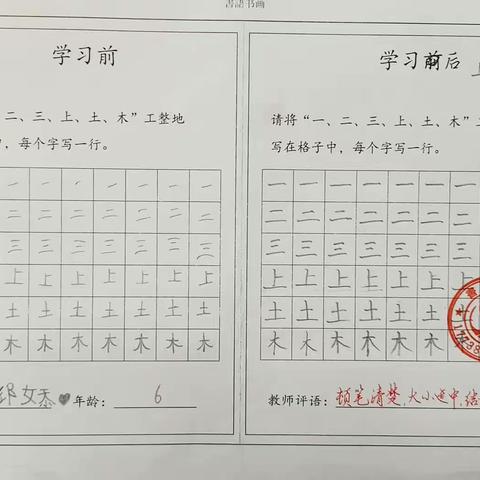 書語书画
学习前
二、三、上、土、木”工整地
中，每个字写一行。
一 一 一 一 一 一 一
二 二 二 二 二 二 二
三 三 三 三 三 三 三
上 上 上 上 上 上 上
土 土 土 土 土 土 土
木 木 木 木 木 木 木
年龄：6
学习后
请将“一、二、三、上、土、木”
写在格子中，每个字写一行。
一 一 一 一 一 一 一
二 二 二 二 二 二 二
三 三 三 三 三 三 三
上 上 上 上 上 上 上
土 土 土 土 土 土
木 木 木 木 木 木
教师评语：顿笔清楚，大小适中，结